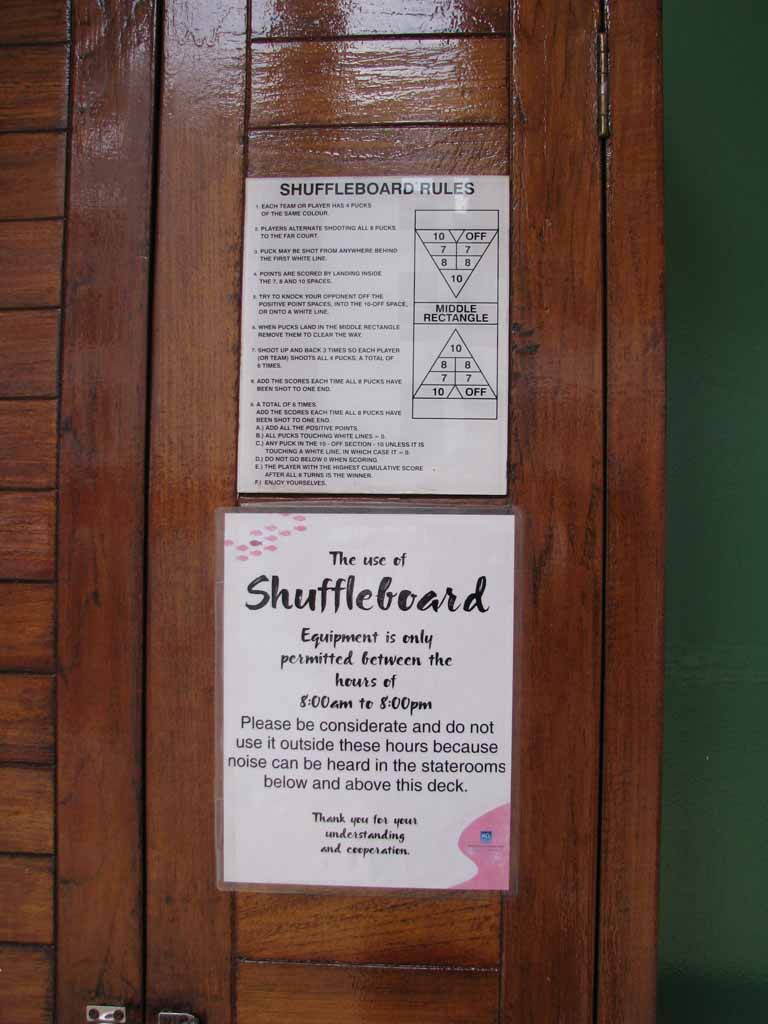 SHUFFLEBOARD RULES
1. EACH TEAM OR PLAYER HAS 4 PUCKS
OF THE SAME COLOUR.
2. PLAYERS ALTERNATE SHOOTING ALL 8 PUCKS
TO THE FAR COURT.
3. PUCK MAY BE SHOT FROM ANYWHERE BEHIND
THE FIRST WHITE LINE.
4. POINTS ARE SCORED BY LANDING INSIDE
THE 7, 8 AND 10 SPACES.
5. TRY TO KNOCK YOUR OPPONENT OFF THE
POSITIVE POINT SPACES, INTO THE 10-OFF SPACE,
OR ONTO A WHITE LINE.
6. WHEN PUCKS LAND IN THE MIDDLE RECTANGLE
REMOVE THEM TO CLEAR THE WAY.
7. SHOOT UP AND BACK 3 TIMES SO EACH PLAYER
(OR TEAM) SHOOTS ALL 4 PUCKS, A TOTAL OF
6 TIMES.
8. ADD THE SCORES EACH TIME ALL 8 PUCKS HAVE
BEEN SHOT TO ONE END.
9. A TOTAL OF 6 TIMES.
ADD THE SCORES EACH TIME ALL 8 PUCKS HAVE
BEEN SHOT TO ONE END.
A.) ADD ALL THE POSITIVE POINTS.
B.) ALL PUCKS TOUCHING WHITE LINES = 0.
C.) ANY PUCK IN THE 10 - OFF SECTION - 10 UNLESS IT IS
TOUCHING A WHITE LINE, IN WHICH CASE IT = 0.
D.) DO NOT GO BELOW 0 WHEN SCORING.
E.) THE PLAYER WITH THE HIGHEST CUMULATIVE SCORE
AFTER ALL 6 TURNS IS THE WINNER.
F.) ENJOY YOURSELVES.
10 OFF
7 7
8 8
10
MIDDLE
RECTANGLE
10
8 8
7 7
10 OFF
The use of
Shuffleboard
Equipment is only
permitted between the
hours of
8:00am to 8:00pm
Please be considerate and do not
use it outside these hours because
noise can be heard in the staterooms
below and above this deck.
Thank you for your
understanding
and cooperation.